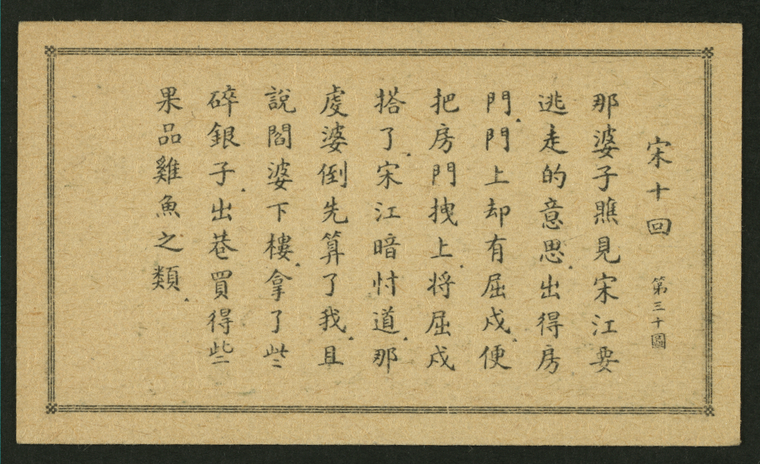 宋十回 第三十圖
那婆子瞧見宋江要
逃走的意思.出得房
門.門上却有屈戍.便
把房門拽上.將屈戍
搭了.宋江暗忖道.那
虔婆倒先算了我.且
說閻婆下樓.拿了些
碎銀子.出巷買得些
果品雞魚之類.